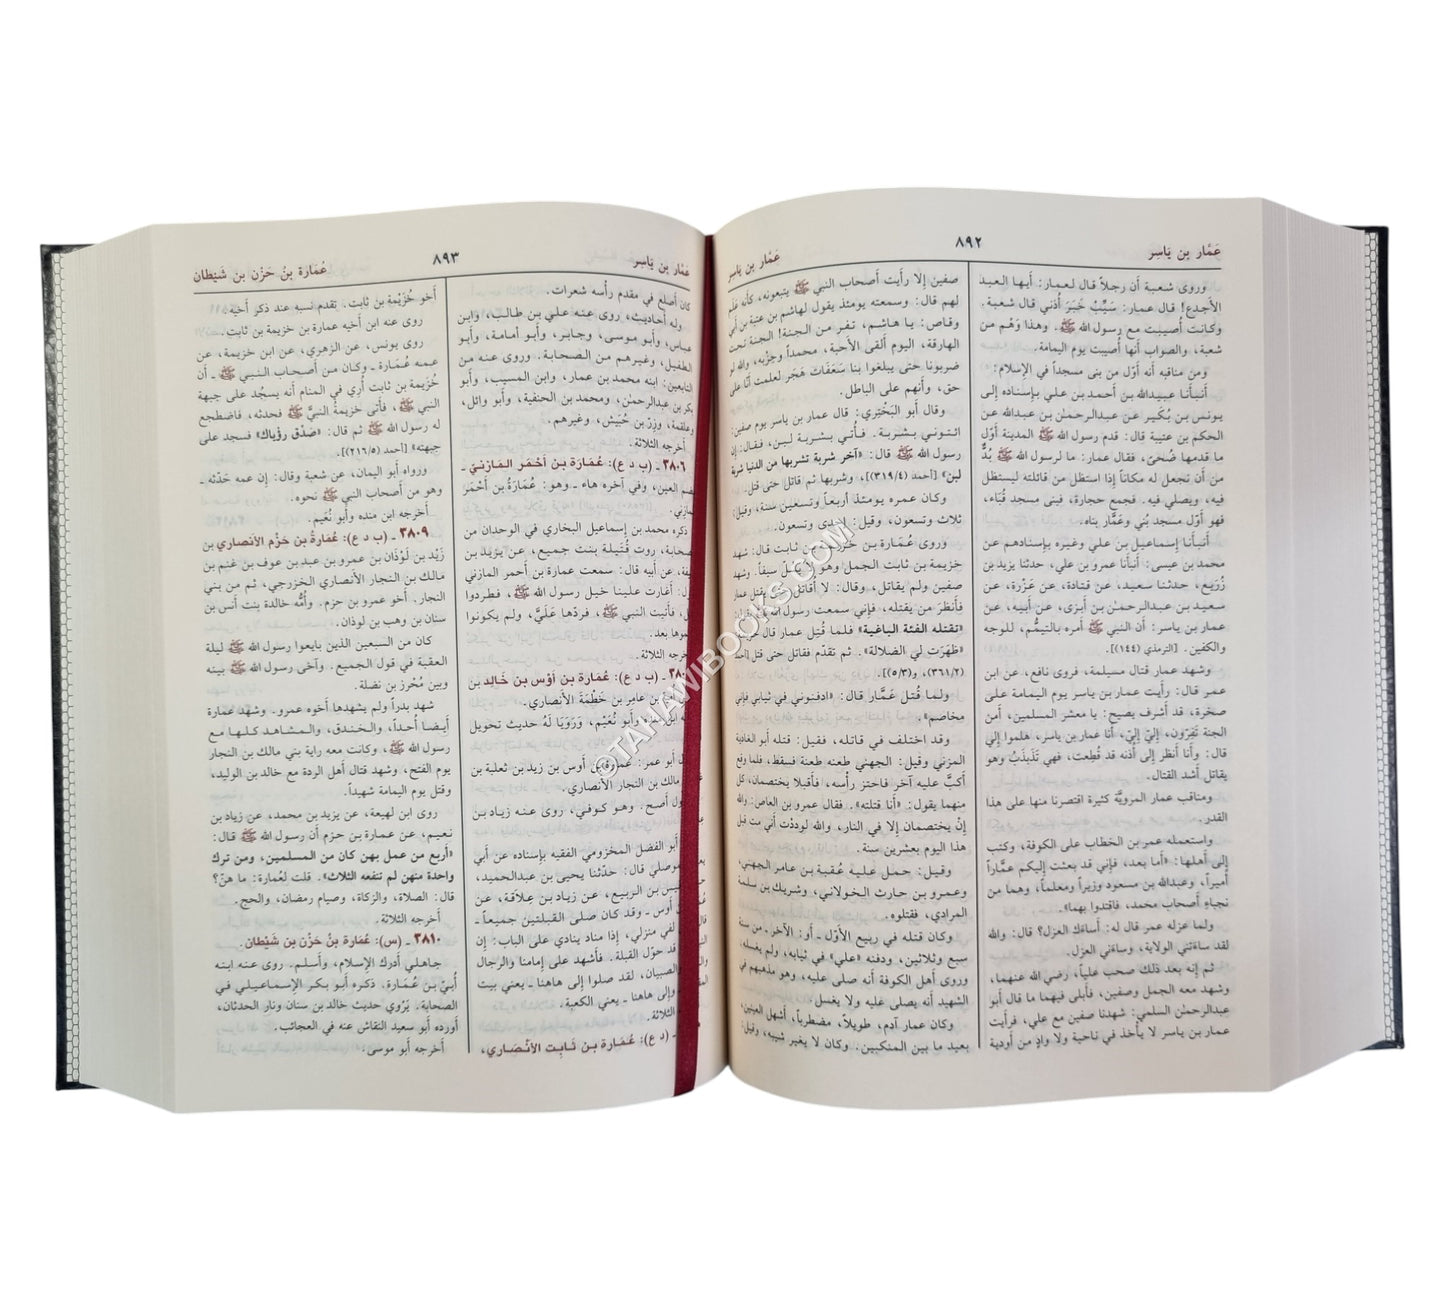 ٨٩٢
عَمَّار بن يَاسِر
عَمَّار بن يَاسِر
وروى شعبة أن رجلاً قال لعمار: أيها العبد
الأجدع! قال عمار: سَيِّبْتُ خَيَرَ أُذني قال شعبة.
وكانت أُصيبت مع رسول الله ﷺ، وهذا وَهُم من
شعبة، والصواب أنها أُصيبت يوم اليمامة.
ومن مناقبه أنه أوّل من بنى مسجداً في الإسلام:
أنبأنا عبيدالله بن أحمد بن علي بإسناده إلى
يونس بن بُكَير عن عبدالرحمٰن بن عبدالله عن
الحكم بن عتيبة قال: قدم رسول الله ﷺ المدينة أوّل
ما قدمها ضُحىً، فقال عمار: ما لرسول الله ﷺ بُدٌّ
من أن نجعل له مكاناً إذا استظل من قائلته ليستظل
فيه، ويصلي فيه. فجمع حجارة، فبنى مسجد قُبَاء،
فهو أوّل مسجد بُني وعمَّار بناه.
أنبأنا إسماعيل بن علي وغيره بإسنادهم عن
محمد بن عيسى: أنبأنا عمرو بن علي، حدثنا يزيد بن
زُرَيع، حدثنا سعيد، عن قتادة، عن عَزْرة، عن
سعيد بن عبدالرحمٰن بن أبزى، عن أبيه، عن
عمار بن ياسر: أن النبي ﷺ أمره بالتيمُّم، للوجه
والكفين. [الترمذي (١٤٤)].
وشهد عمار قتال مسيلمة، فروى نافع، عن ابن
عمر قال: رأيت عمار بن ياسر يوم اليمامة على
صخرة، قد أشرف يصيح: يا معشر المسلمين، أمن
الجنة تَفِرّون، إليّ إليّ، أنا عمار بن ياسر، هلموا إلي
قال: وأنا أنظر إلى أُذنه قد قُطِعت، فهي تَذَبذَبُ وهو
يقاتل أشد القتال.
ومناقب عمار المرويَّة كثيرة اقتصرنا منها على هذا
القدر.
واستعمله عمر بن الخطاب على الكوفة، وكتب
إلى أهلها: «أما بعد، فإني قد بعثت إليكم عمَّاراً
أميراً، وعبدالله بن مسعود وزيراً ومعلماً، وهما من
نجباءِ أصحاب محمد، فاقتدوا بهما».
ولما عزله عمر قال له: أَساءَك العزل؟ قال: والله
لقد ساءَتني الولاية، وساءَني العزل.
ثم إنه بعد ذلك صحب علياً، رضي الله عنهما،
وشهد معه الجمل وصفين، فأَبلى فيهما ما قال أبو
عبدالرحمٰن السلمي: شهدنا صفين مع علي، فرأيت
عمار بن ياسر لا يأخذ في ناحية ولا وادٍ من أودية
صفين إلا رأيت أصحاب النبي ﷺ يتبعونه، كأنه علم
لهم قال: وسمعته يومئذ يقول لهاشم بن عتبة بن أبي
وقاص: يا هاشم، تفر من الجنة! الجنة تحت
الهارقة، اليوم ألقى الأحبة، محمداً وحِزْبه، والله لو
ضربونا حتى يبلغوا بنا سَعَفَات هَجَر لعلمت أنا على
حق، وأنهم على الباطل.
وقال أبو البَخْتَري: قال عمار بن ياسر يوم صفين:
ائتوني بشربة. فأُتي بشربة لبن، فقال: إن
رسول الله ﷺ قال: «آخر شربة تشربها من الدنيا شربة
لبن» [أحمد (٣١٩/٤)]، وشربها ثم قاتل حتى قتل.
وكان عمره يومئذ أربعاً وتسعين سنة، وقيل:
ثلاث وتسعون، وقيل: إحدى وتسعون.
وروى عُمَارة بن خُزَيمة بن ثابت قال: شهد
خزيمة بن ثابت الجمل وهو لا يسل سيفاً. وشهد
صفين ولم يقاتل، وقال: لا أُقاتل حتى يقتل عمار
فأنظر من يقتله، فإني سمعت رسول الله ﷺ يقول:
«تقتله الفئة الباغية» فلما قُتِل عمار قال خزيمة:
«ظَهَرَت لِيَ الضلالة». ثم تقدّم فقاتل حتى قتل [أحمد
(٣٦١/٢)، و(٥/٣)].
ولما قُتل عَمَّار قال: «ادفنوني في ثيابي فإني
مخاصم».
وقد اختلف في قاتله، فقيل: قتله أبو الغادية
المزني وقيل: الجهني طعنه طعنة فسقط، فلما وقع
أكبَّ عليه آخر فاحتز رأسه، فأقبلا يختصمان، كل
منهما يقول: «أنا قتلته». فقال عمرو بن العاص: والله
إنْ يختصمان إلا في النار، والله لوددْت أني مت قبل
هذا اليوم بعشرين سنة.
وقيل: حمل عليه عُقبة بن عامر الجهني،
وعمرو بن حارث الخولاني، وشريك بن سلمة
المرادي، فقتلوه.
وكان قتله في ربيع الأوّل ـ أو: الآخر ـ من سنة
سبع وثلاثين، ودفنه «علي» في ثيابه، ولم يغسله.
وروى أهل الكوفة أنه صلى عليه، وهو مذهبهم في
الشهيد أنه يصلى عليه ولا يغسل.
وكان عمار آدم، طويلاً، مضطرباً، أشهل العينين،
بعيد ما بين المنكبين. وكان لا يغير شيبه، وقيل:
٨٩٣
عَمَّار بن يَاسِر
عُمَارة بنُ حَزْن بن شَيْطان
كان أصلع في مقدم رأسه شعرات.
وله أحاديث، روى عنه علي بن طالب، وابن
عباس، وأبو موسى، وجابر، وأبو أمامة، وأبو
الطفيل، وغيرهم من الصحابة. وروى عنه من
التابعين: ابنه محمد بن عمار، وابن المسيب، وأبو
بكر بن عبدالرحمٰن، ومحمد بن الحنفية، وأبو وائل،
وعلقمة، وزِرّ بن حُبَيش، وغيرهم.
أخرجه الثلاثة.
٣٨٠٦ ـ (ب د ع): عُمَارَة بن أَحْمَر المَازنيّ ـ
بضم العين، وفي آخره هاء ـ وهو: عُمَارَةُ بن أَحْمَر
المازني.
ذكره محمد بن إسماعيل البخاري في الوحدان من
الصحابة، روت قُتَيلة بنت جميع، عن يزيد بن
عن أبيه قال: سمعت عمارة بن أحمر المازني
قال: أغارت علينا خيل رسول الله ﷺ، فطردوا
فأتيت النبي ﷺ، فردّها عَلَيَّ، ولم يكونوا
بعد.
أخرجه الثلاثة.
(ب د ع): عُمَارَة بن أَوْس بن خَالِد بن
بن عامر بن خَطْمَة الأنصاري.
وأبو نُعَيْم، وَرَوَيَا لَهُ حديث تحويل
أبو عمر: عمارة بن أوس بن زيد بن ثعلبة بن
مالك بن النجار الأنصاري.
أصح. وهو كوفي، روى عنه زياد بن
أبو الفضل المخزومي الفقيه بإسناده عن أبي
الموصلي قال: حدّثنا يحيى بن عبدالحميد،
قيس بن الربيع، عن زياد بن عِلاقة، عن
أوس ـ وقد كان صلى القبلتين جميعاً ـ
لفي منزلي، إذا مناد ينادي على الباب: إن
قد حوّل القبلة. فأشهد على إمامنا والرجال
والصبيان، لقد صلوا إلى هاهنا ـ يعني بيت
وإلى هاهنا ـ يعني الكعبة.
الثلاثة.
(د ع): عُمَارَة بن ثَابِت الأَنْصَاري،
أخو خُزَيْمة بن ثابت. تقدم نسبه عند ذكر أخيه.
روى عنه ابن أخيه عمارة بن خزيمة بن ثابت.
روى يونس، عن الزهري، عن ابن خزيمة، عن
عمه عُمَارة ـ وكان من أصحاب النبي ﷺ ـ أن
خُزَيمة بن ثابت أُري في المنام أنه يسجُد على جبهة
النبي ﷺ، فأتى خزيمة النبيَّ ﷺ فحدثه، فاضطجع
له رسول الله ﷺ ثم قال: «صَدِّق رؤياك» فسجد على
جبهته» [أحمد (٢١٦/٥)].
ورواه أبو اليمان، عن شعبة وقال: إن عمه حَدّثه ـ
وهو من أصحاب النبي ﷺ نحوه.
أخرجه ابن منده وأبو نُعَيم.
٣٨٠٩ ـ (ب د ع): عُمَارةُ بن حَزْم الأنصاري بن
زَيْد بن لَوْذَان بن عمرو بن عبد بن عوف بن غنم بن
مالك بن النجار الأنصاري الخزرجي، ثم من بني
النجار. أخو عمرو بن حزم. وأُمُّه خالدة بنت أنس بن
سنان بن وهب بن لوذان.
كان من السبعين الذين بايعوا رسول الله ﷺ ليلة
العقبة في قول الجميع. وآخى رسول الله ﷺ بينه
وبين مُحْرِز بن نضلة.
شهد بدراً ولم يشهدها أخوه عمرو. وشهد عمارة
أيضا أُحداً، والخندق، والمشاهد كلها مع
رسول الله ﷺ، وكانت معه راية بني مالك بن النجار
يوم الفتح، وشهد قتال أهل الردة مع خالد بن الوليد،
وقتل يوم اليمامة شهيداً.
روى ابن لهيعة، عن يزيد بن محمد، عن زياد بن
نعيم، عن عمارة بن حزم أن رسول الله ﷺ قال:
«أربع من عمل بهن كان من المسلمين، ومن ترك
واحدة منهن لم تنفعه الثلاث». قلت لعُمارة: ما هنّ؟
قال: الصلاة، والزكاة، وصيام رمضان، والحج.
أخرجه الثلاثة.
٣٨١٠ ـ (س): عُمَارة بنُ حَزْن بن شَيْطان.
جاهلي أدرك الإسلام، وأسلم. روى عنه ابنه
أُبيّ بن عُمَارة. ذكره أبو بكر الإسماعيلي في
الصحابة. يَرْوي حديث خالد بن سنان ونار الحدثان،
أورده أبو سعيد النقاش عنه في العجائب.
أخرجه أبو موسى.
©TAHAWIBOOKS.COM